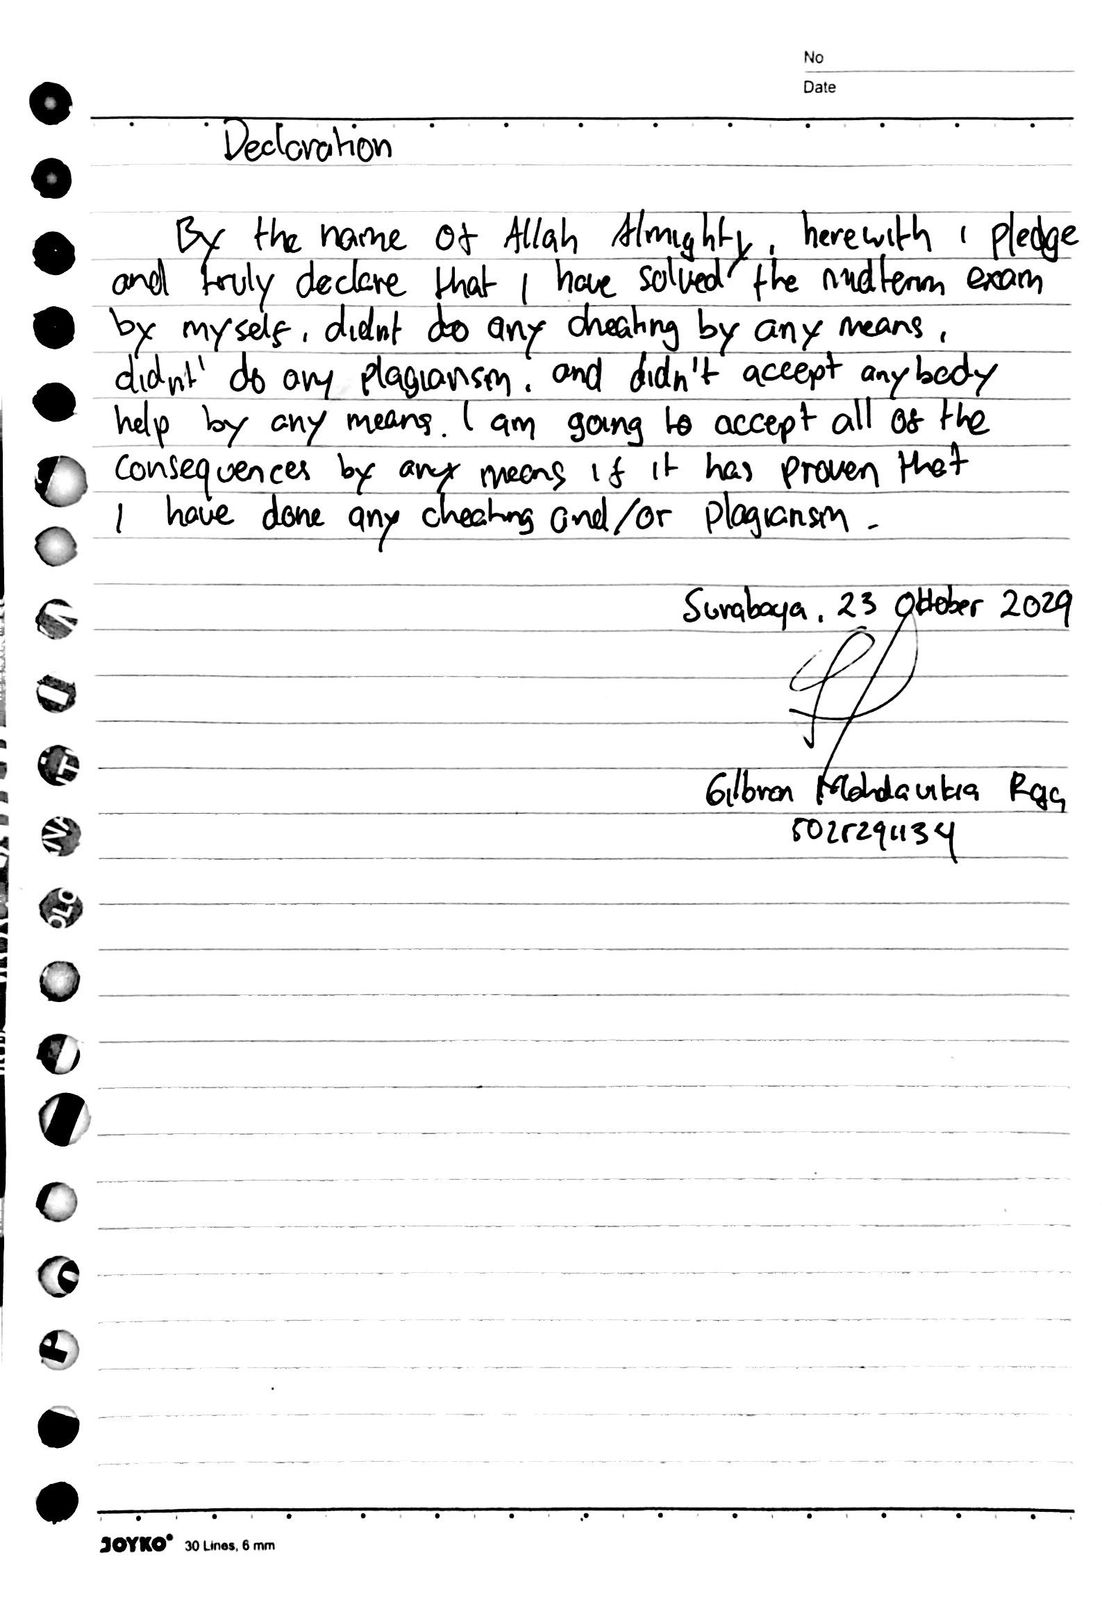 No
Date
Declaration
By the name of Allah Almighty, herewith I pledge
and truly declare that I have solved the midterm exam
by myself, didnt do any cheating by any means,
didnt' do any plagianism, and didn't accept anybody
help by any means. I am going to accept all of the
consequences by any means if it has proven that
I have done any cheating and/or plagianism.
Surabaya, 23 Oktober 2024
Raja
5025241134
JOYKO 30 Lines, 6 mm